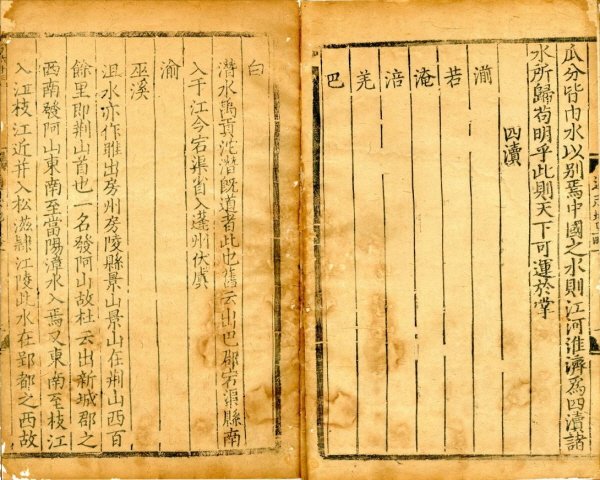 瓜分皆由水以別焉中國之水則江河淮濟爲四瀆諸
水所歸苟明乎此則天下可運於掌
四瀆
湔
若
淹
涪
羌
巴
白
潛水禹貢沱潛旣道者此也舊云出巴郡宕渠縣南
入于江今宕渠省入蓬州伏虞
渝
巫溪
沮水亦作雎出房州房陵縣景山景山在荆山西百
餘里即荆山首也一名發阿山故杜云出新城郡之
西南發阿山東南至當陽漳水入焉又東南至枝江
入江枝江近并入松滋隷江陵此水在郢都之西故